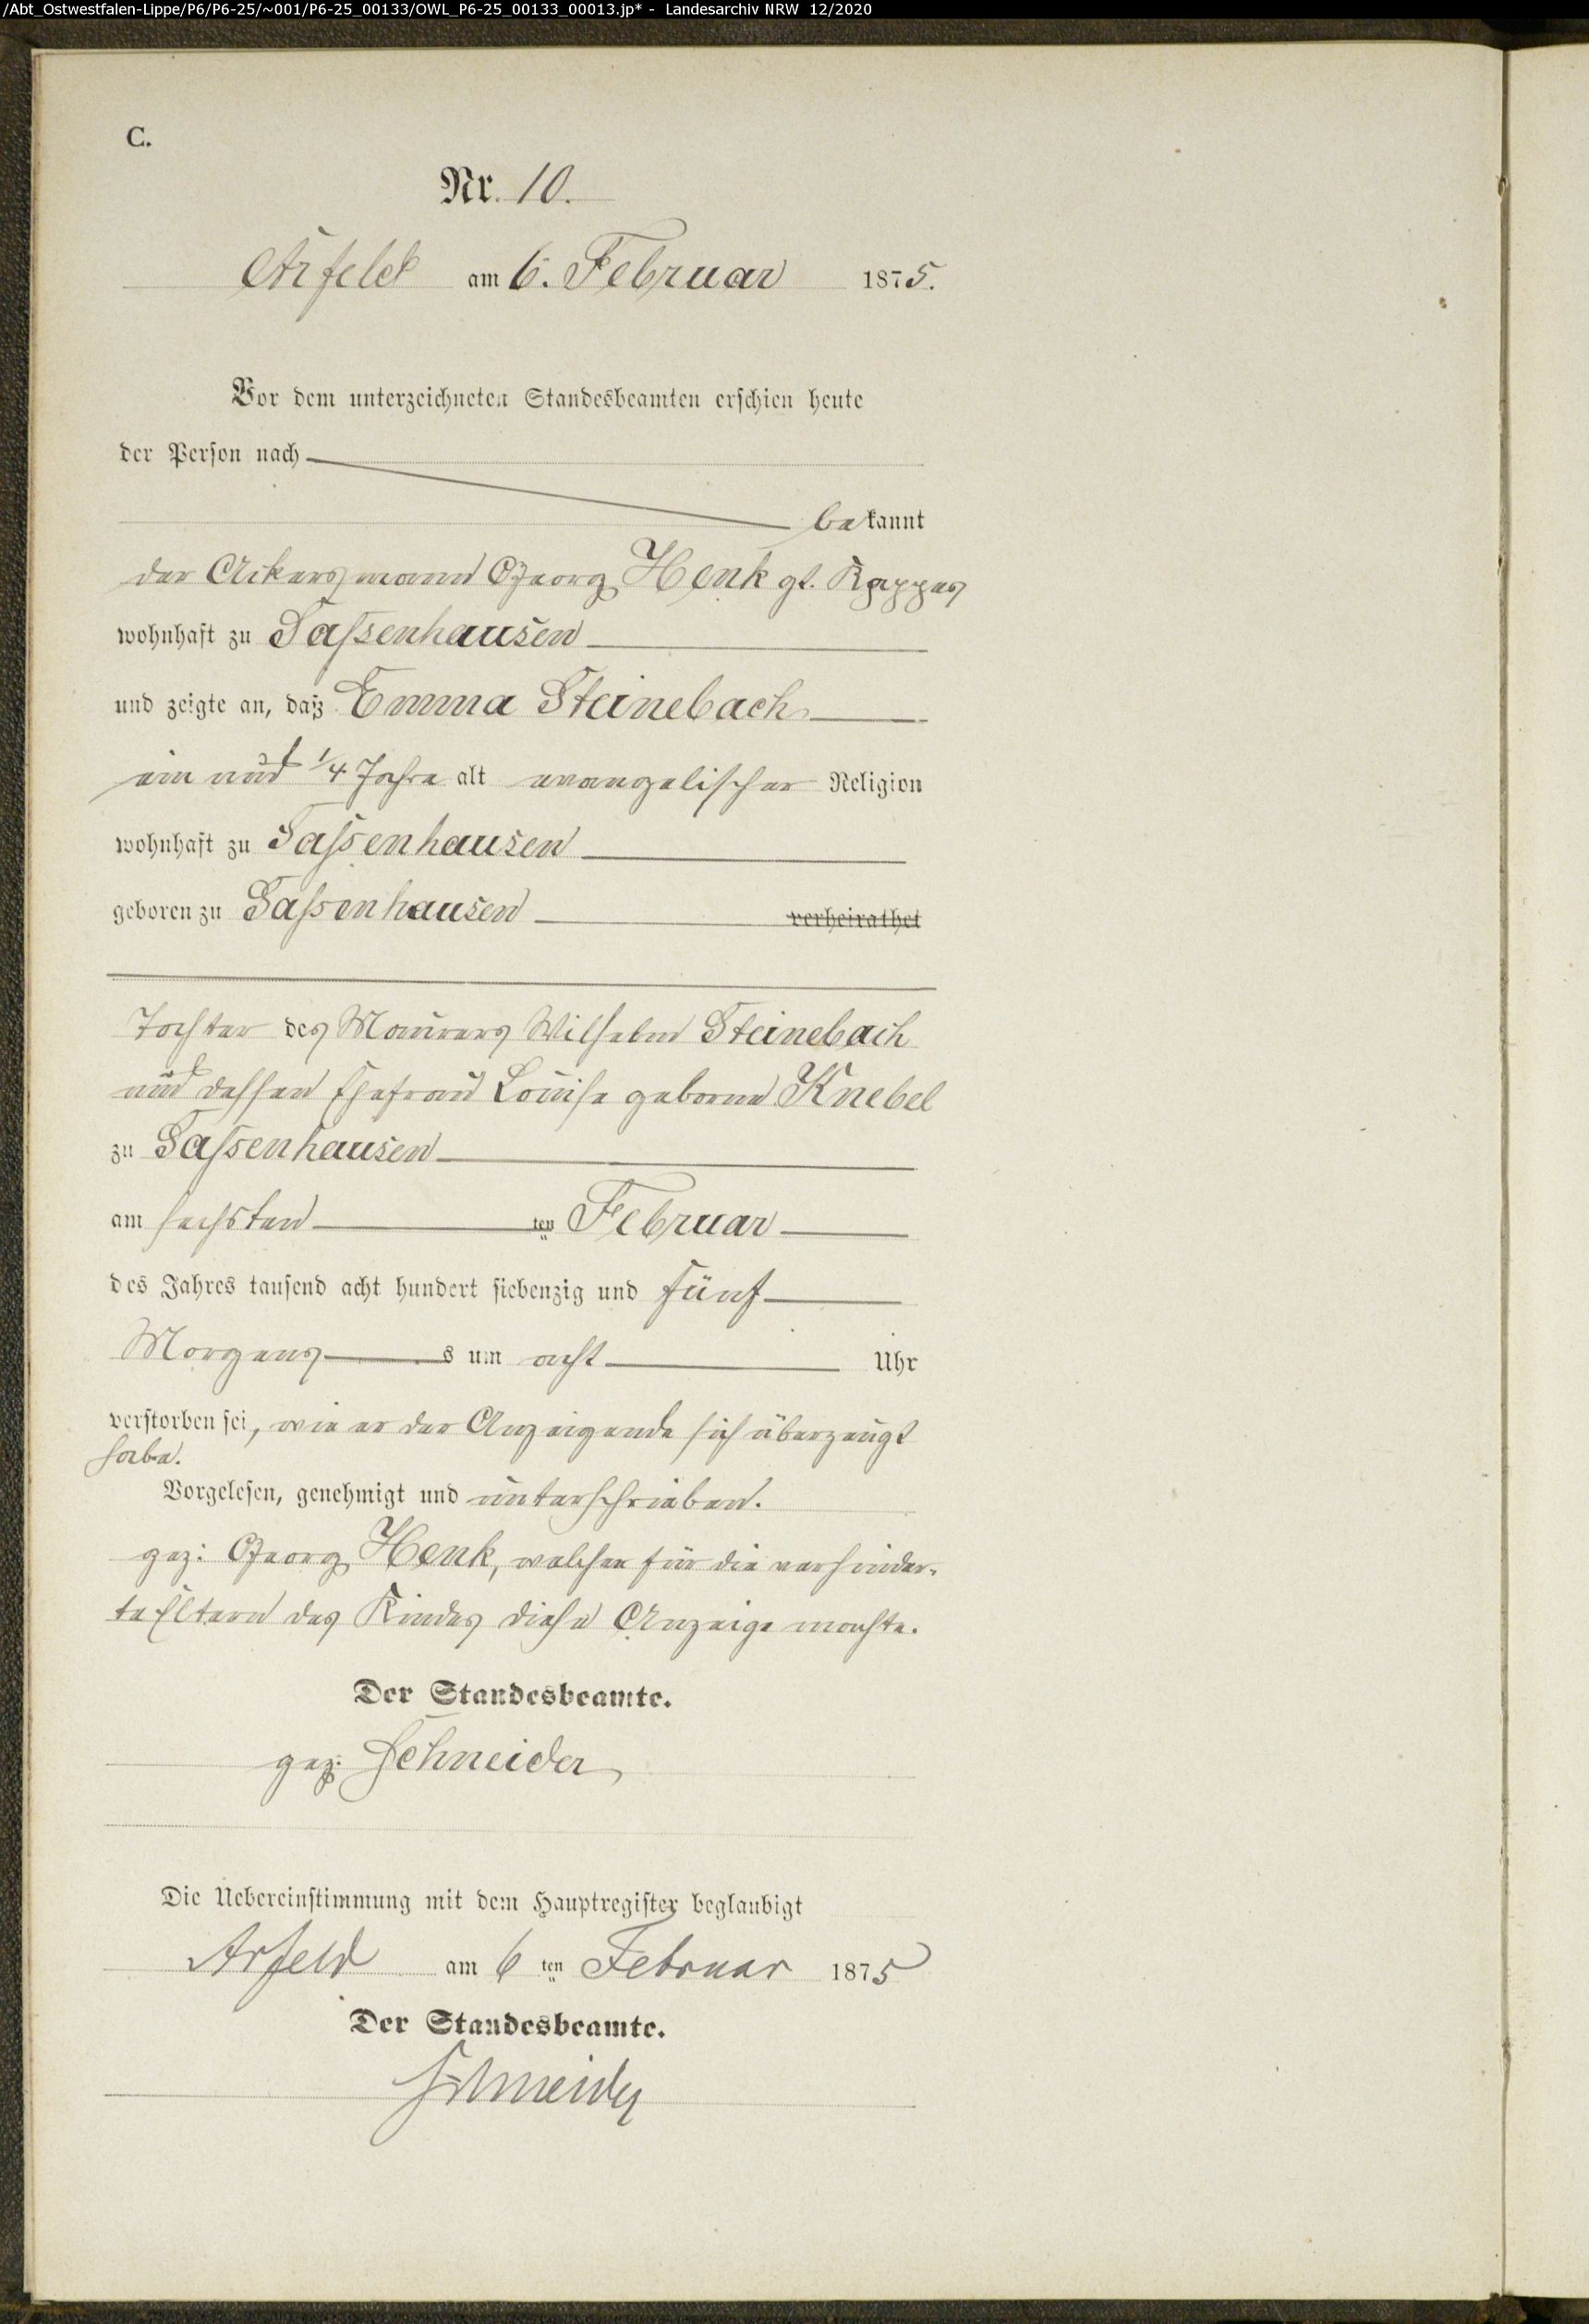 /Abt_Ostwestfalen-Lippe/P6/P6-25/~001/P6-25_00133/OWL_P6-25_00133_00013.jp* - Landesarchiv NRW 12/2020
C.
Nr. 10.
Arfeld am 6. Februar 1875.
Vor dem unterzeichneten Standesbeamten erschien heute
der Person nach
bekannt
der Ackersmann Georg Henk gt. Kappes
wohnhaft zu Saßenhausen
und zeigte an, daß Emma Steinebach
ein und 1/4 Jahre alt evangelischer Religion
wohnhaft zu Saßenhausen
geboren zu Saßenhausen verheirathet
Tochter des Maurers Wilhelm Steinebach
und dessen Ehefrau Louise geborne Knebel
zu Saßenhausen
am sechsten ten Februar
des Jahres tausend acht hundert siebenzig und fünf
Morgens s um acht Uhr
verstorben sei, wie er der Anzeigende sich überzeugt
habe.
Vorgelesen, genehmigt und unterschrieben.
gez: Georg Henk, welcher für die verhinder-
te Eltern des Kindes diese Anzeige machte.
Der Standesbeamte.
gez: Schneider
Die Uebereinstimmung mit dem Hauptregister beglaubigt
Arfeld am 6 ten Februar 1875
Der Standesbeamte.
Schneider